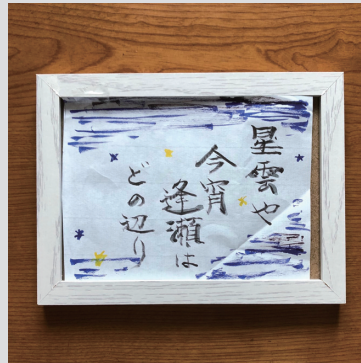 星雲や
今宵
逢瀬は
どの辺り